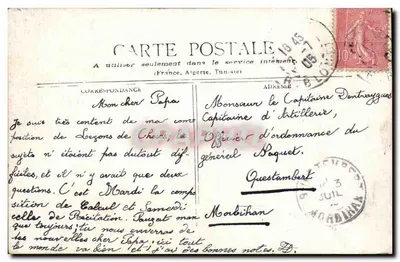 CARTE POSTALE
A utiliser seulement dans le service intérieur
(France, Algérie, Tunisie)
CORRESPONDANCE
Mon cher Papa
Je suis très content de ma com
position de Leçons de Choses, les
sujets n'étaient pas du tout dif
ficiles, et il n'y avait que deux
questions. C'est Mardi la compo
sition de Calcul et Samedi
celle de Récitation. Pourvu
que toujours; tu nous enverras de
tes nouvelles cher Papa. Ici tout
le monde va bien et j'ai des bonnes notes.
ADRESSE
Monsieur le Capitaine Dentraygues
Capitaine d'Artillerie,
Officier d'ordonnance du
général Paquet
Questembert
Morbihan
QUESTEMBERT
3
JUIL
MORBIHAN